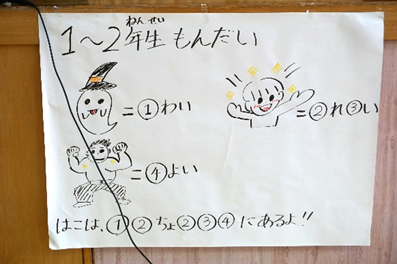 1〜2年生もんだい
ねんせい
=①わい
=②れ③い
=④よい
はこは、①②ちょ②③④にあるよ!!